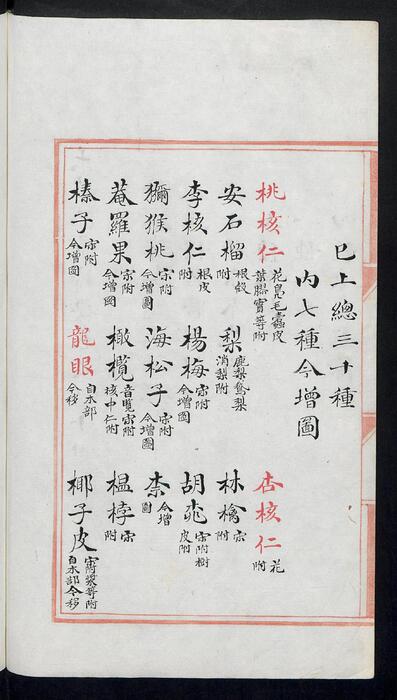 巳上總三十種
内七種今增圖
桃核仁 花梟毛蠹皮葉膠實等附 杏核仁 花附
安石榴 根殼附 梨 鹿梨鵞梨消梨附 林檎 宗附
李核仁 根皮附 楊梅 宗附今增圖 胡桃 宗附樹皮附
獼猴桃 宗附今增圖 海松子 宗附今增圖 柰 今增圖
菴羅果 宗附今增圖 橄欖 音覽宗附核中仁附 榲桲 宗附
榛子 宗附今增圖 龍眼 自木部今移 椰子皮 宗附漿等附自木部今移